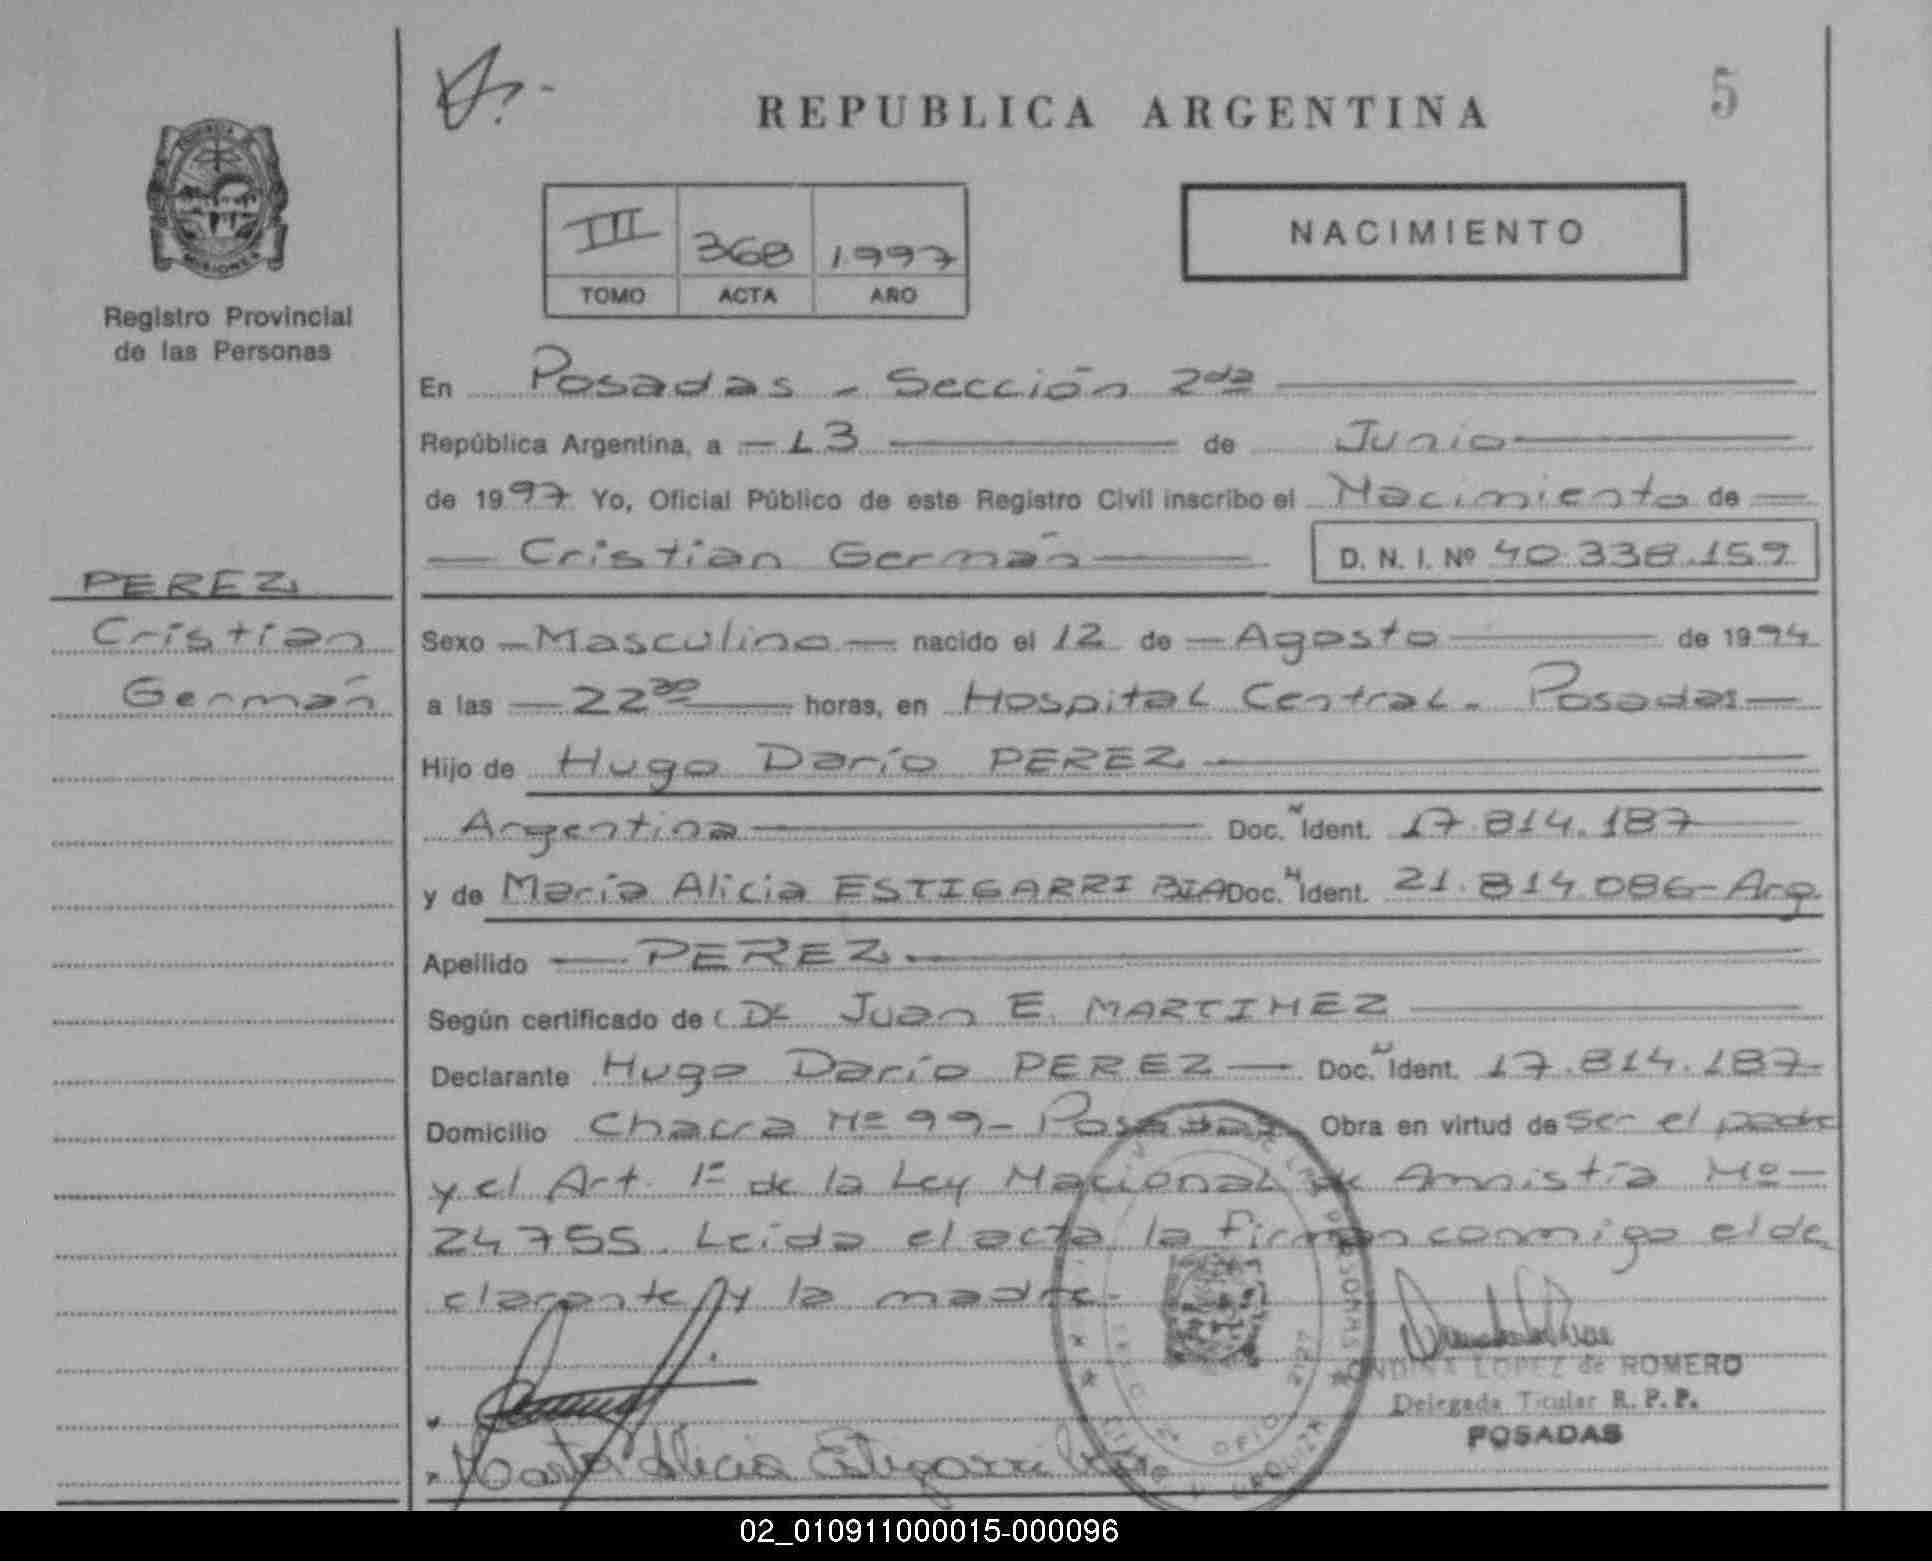 REPUBLICA ARGENTINA
5
III 368 1997
TOMO ACTA AÑO
NACIMIENTO
MISIONES
Registro Provincial
de las Personas
En Posadas - Sección 2da
República Argentina, a 13 de Junio
de 1997 Yo, Oficial Público de este Registro Civil inscribo el Nacimiento de
Cristian Germán D. N. I. Nº 40.338.159
PEREZ
Cristian
Germán
Sexo Masculino nacido el 12 de Agosto de 1994
a las 22 30 horas, en Hospital Central. Posadas
Hijo de Hugo Darío PEREZ
Argentina Doc. N Ident. 17.814.187
y de María Alicia ESTIGARRIBIA Doc. N Ident. 21.814.086 - Arg.
Apellido PEREZ
Según certificado de Dr Juan E. MARTINEZ
Declarante Hugo Darío PEREZ Doc. N Ident. 17.814.187
Domicilio Chacra Nº 99 - Posadas Obra en virtud de ser el padre
y el Art. 1º de la Ley Nacional de Amnistía Nº
24755. Leída el acta la firman conmigo el de
clarante y la madre.
ONDINA LOPEZ de ROMERO
Delegada Titular R. P. P.
POSADAS
Alicia Estigarribia
02_010911000015-000096